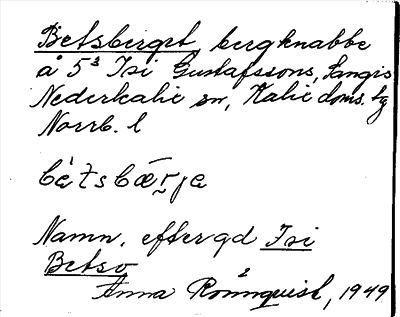 Betsberget, bergknabbe
å 5³ Isi Gustafssons, Sangis
Nederkalix sn, Kalix doms. tg
Norrb. l
bèt̀sbær̄jə
Namn. efter gd Isi
Betso
Anna Rönnquist, 1949